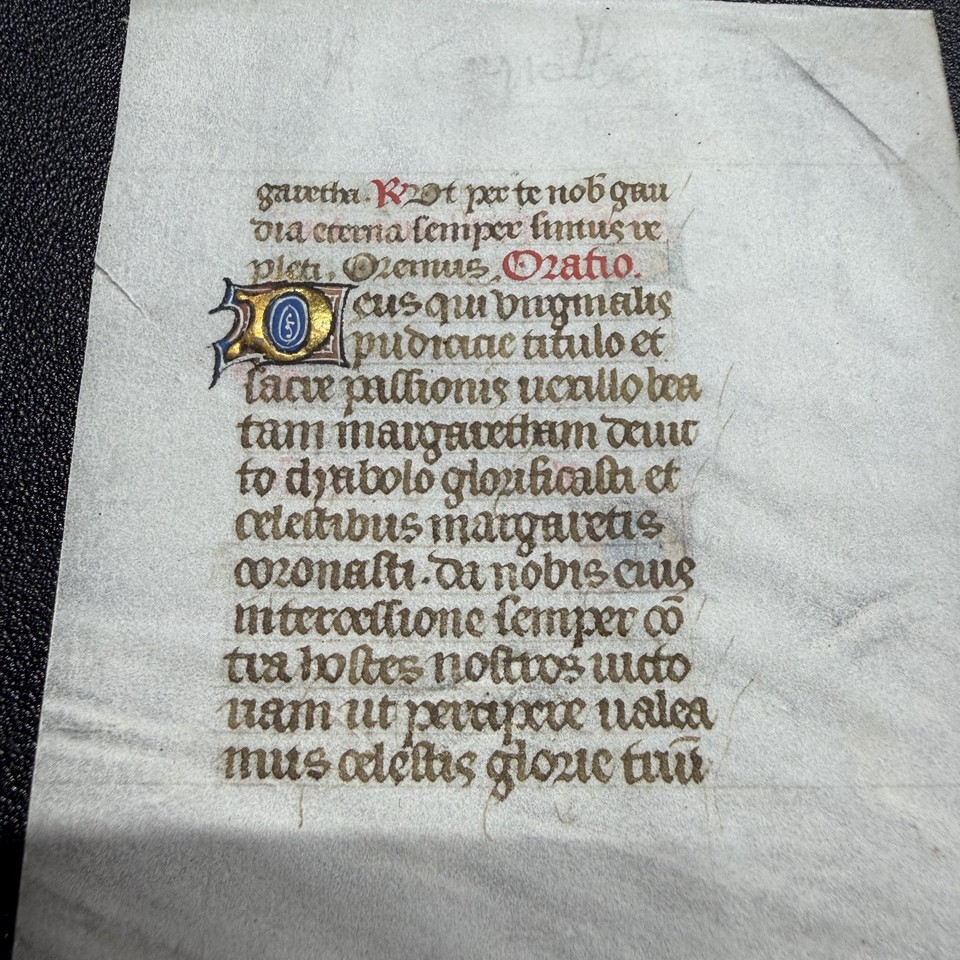 garetha. R Ut per te nob̄ gau
dia eterna semper simus re
pleti. Oremus Oratio.
Deus qui virginalis
pudicicie titulo et
sacre passionis uexillo bea
tam margaretham deuic
to dyabolo glorificasti et
celestibus margaretis
coronasti. da nobis eius
intercessione semper cō
tra hostes nostros uicto
riam ut percipere ualea
mus celestis glorie triū